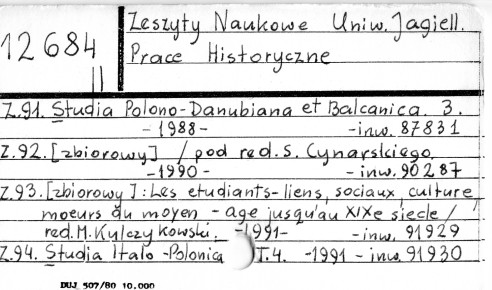 Zeszyty Naukowe Uniw. Jagiell.
12 684
Prace Historyczne
II
Z.91. Studia Polono-Danubiana et Balcanica. 3.
- 1988 - - inw. 87831
Z.92. [zbiorowy] / pod red. S. Cynarskiego.
- 1990 - - inw. 90287
Z.93. [zbiorowy] : Les etudiants-liens, sociaux, culture,
moeurs du moyen - age jusqu'au XIXe siecle /
red. M. Kulczykowski. - 1991 - - inw. 91929
Z.94. Studia Italo-Polonica T.4. - 1991 - inw. 91930
DUJ 507/80 10.000